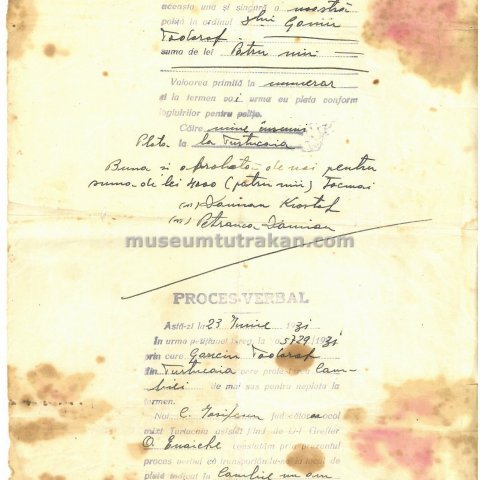 aceasta una și singură a noastră
poliță la ordinul D-lui Ganciu
Todorof
suma de lei Patru mii
Valoarea primită în numerar
și la termen voi urma cu plata conform
legiuirilor pentru polițe.
Către mine însumi
Plata la la Turtucaia
Buna si aprobată de noi pentru
suma de lei 4000 (patru mii) tocmai
(ss) Damian Krostof
(ss) Petranca Damian
museumtutrakan.com
PROCES-VERBAL
Astă-zi la 23 Iunie 1931
In urma petițiunei înreg. la No 5729/931
prin care Ganciu Todorof
din Turtucaia cere protestarea Cam-
biei de mai sus pentru neplata la
termen.
Noi, C. judecător ocol
mixt Turtucaia asistat fiind de D-l Grefier
O. Enache constatăm prin prezentul
proces verbal că transportându-ne la locul de
plată indicat în Cambie nu am